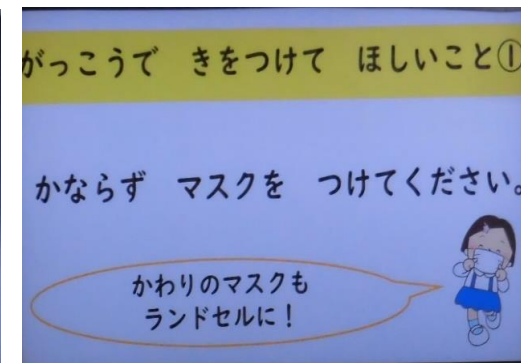 がっこうで きをつけて ほしいこと①
かならず マスクを つけてください。
かわりのマスクも
ランドセルに！